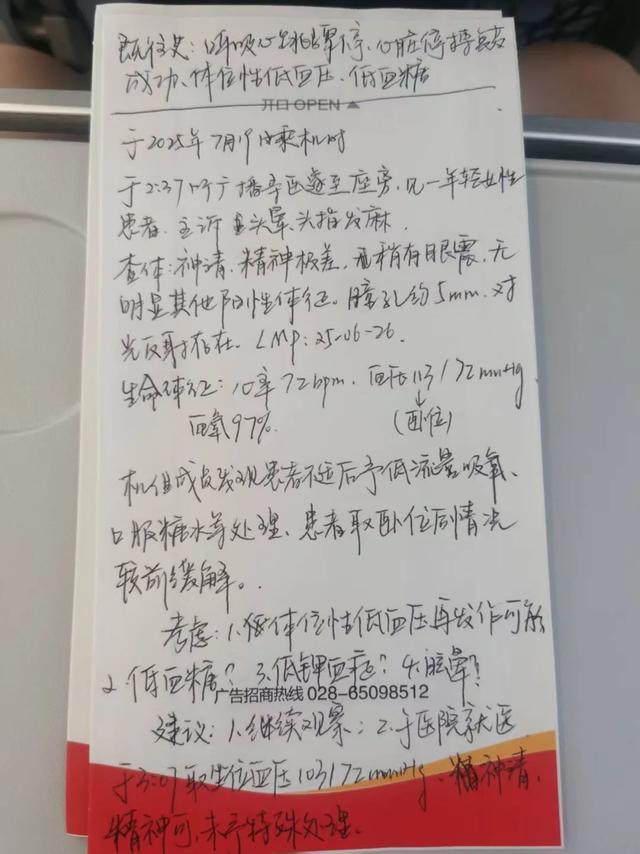 既往史:呼吸心跳骤停、心脏停搏复苏
成功、体位性低血压、低血糖
开口 OPEN
于2025年7月19日乘机时
于2:37听广播寻医遂至座旁,见一年轻女性
患者,主诉头晕、头指发麻.
查体:神清、精神极差,稍有眼震,无
明显其他阳性体征。瞳孔约5mm.对
光反射存在. LMP:25-06-26.
生命体征:心率72bpm. 血压113/72mmHg
血氧97%. (卧位)
机组成员发现患者不适后予低流量吸氧、
口服糖水等处理、患者取卧位后情况
较前缓解。
考虑:1.体位性低血压再发作可能
2.低血糖? 3.低钾血症? 4.晕?
广告招商热线 028-65098512
建议:1.继续观察;2.于医院就医
于3:07取坐位血压103/72mmHg、精神清、
精神可,未予特殊处理.